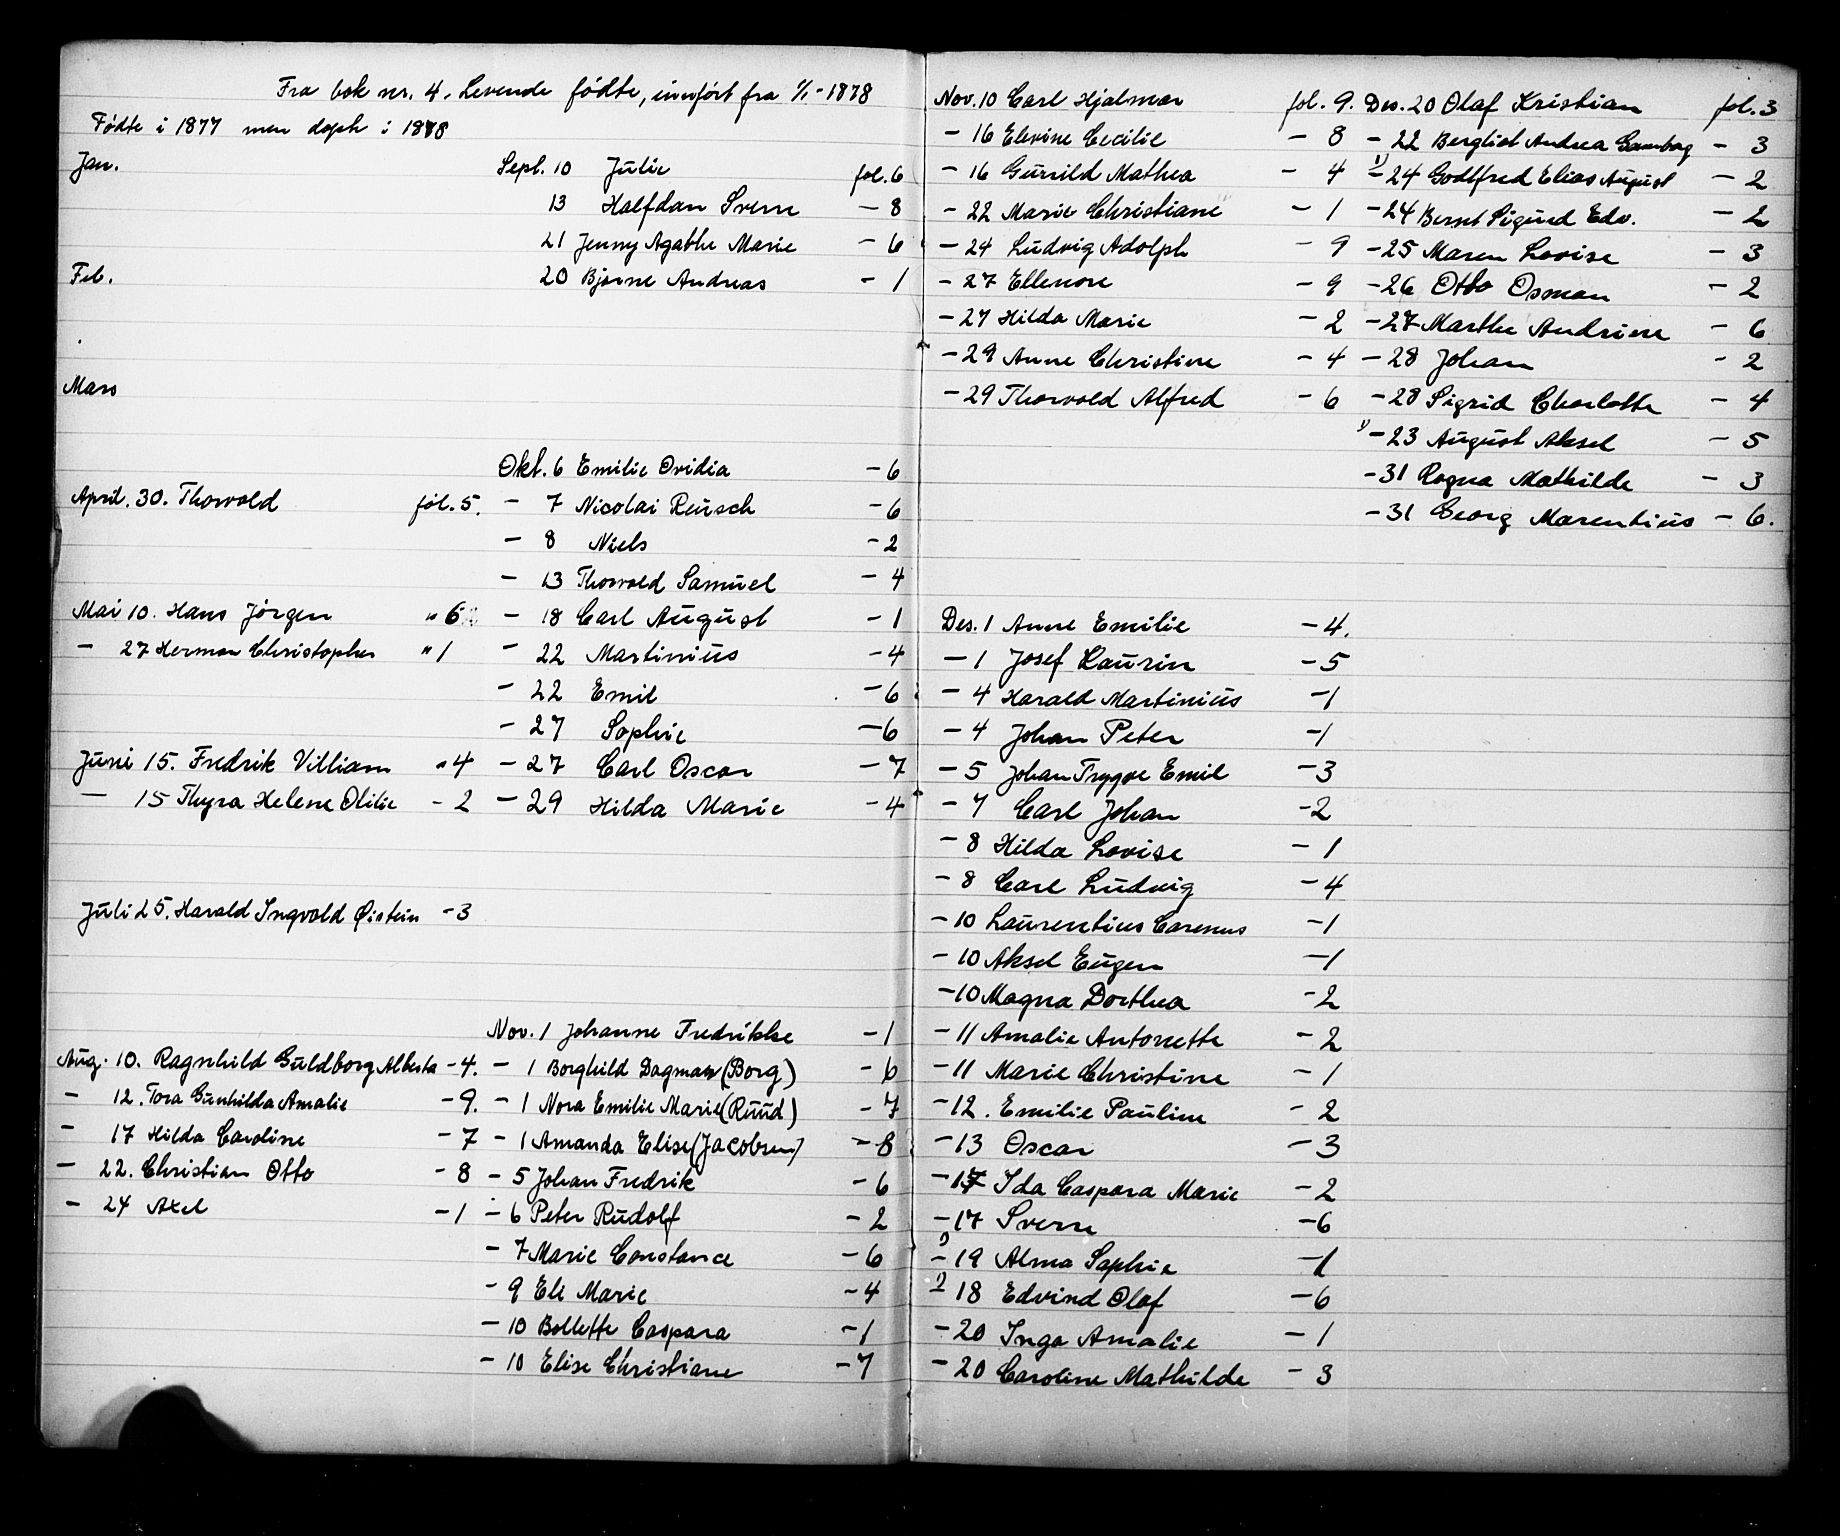 Fra bok nr. 4. Levende fødte, innført fra 1/1-1878
Fødte i 1877 men døpt i 1878
Jan.
Feb.
Mars
April. 30. Thorvald fol. 5.
Mai 10. Hans Jørgen " 6
- 27 Herman Christopher " 1
Juni 15. Fredrik Villiam " 4
- 15 Thyra Helene Otilie - 2
Juli 25. Harald Ingvald Øistein - 3
Aug. 10. Ragnhild Guldborg Alberta - 4.
- 12. Tora Gunhilda Amalie - 9.
- 17 Hilda Caroline - 7
- 22. Christian Otto - 8
- 24 Axel - 1
Sept. 10 Julie fol. 6
13 Halfdan Sverre - 8
21 Jenny Agathe Marie - 6
20 Bjarne Andreas - 1
Okt. 6 Emilie Ovidia - 6
- 7 Nicolai Reusch - 6
- 8 Niels - 2
- 13 Thorvald Samuel - 4
- 18 Carl August - 1
- 22 Martinius - 4
- 22 Emil - 6
- 27 Sophie - 6
- 27 Carl Oscar - 7
- 29 Hilda Marie - 4
Nov. 1 Johanne Fredrikke - 1
- 1 Borghild Dagmar (Borg) - 6
- 1 Nora Emilie Marie (Ruud) - 7
- 1 Amanda Elise (Jacobsen) - 8
- 5 Johan Fredrik - 6
- 6 Peter Rudolf - 2
- 7 Marie Constance - 6
- 9 Eli Marie - 4
- 10 Bollette Caspara - 1
- 10 Elise Christiane - 7
Nov. 10 Carl Hjalmar fol. 9.
- 16 Elevine Cecilie - 8
- 16 Gunild Mathea - 4
- 22 Marie Christiane - 1
- 24 Ludvig Adolph - 9
- 27 Ellenore - 9
- 27 Hilda Marie - 2
- 29 Anne Christine - 4
- 29 Thorvald Alfred - 6
Des. 1 Anne Emilie - 4.
- 1 Josef Laurin - 5
- 4 Harald Martinius - 1
- 4 Johan Peter - 1
- 5 Johan Trygve Emil - 3
- 7 Carl Johan - 2
- 8 Hilda Lovise - 1
- 8 Carl Ludvig - 4
- 10 Laurentius Carenus - 1
- 10 Aksel Eugen - 1
- 10 Magna Dorthea - 2
- 11 Amalie Antonette - 2
- 11 Marie Christine - 1
- 12. Emilie Pauline - 2
- 13 Oscar - 3
- 17 Ida Caspara Marie - 2
- 17 Sverre - 6
- 19 Alma Sophie - 1
- 18 Edvind Olaf - 6
- 20 Inga Amalie - 1
- 20 Caroline Mathilde - 3
Des. 20 Olaf Kristian fol. 3
- 22 Bergliot Andrea - 3
1) - 24 Godtfred Elias August - 2
- 24 Bernt Sigurd Edv. - 2
- 25 Maren Lovise - 3
- 26 Otto Osman - 2
- 27 Marthe Andrine - 6
- 28 Johan - 2
- 28 Sigrid Charlotte - 4
1) - 23 August Aksel - 5
- 31 Ragna Mathilde - 3
- 31 Georg Marentius - 6.